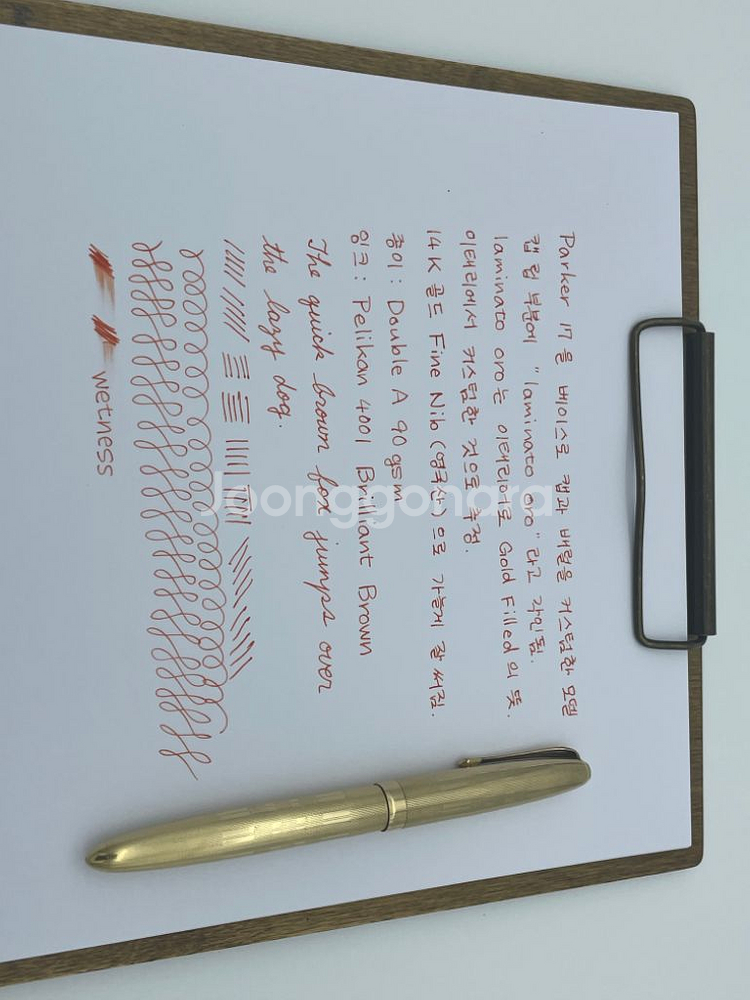 Parker 17 을 베이스로 캡과 배럴을 커스텀한 모델
캡 립 부분에 "laminato oro"라고 각인됨.
laminato oro는 이태리어로 Gold Filled의 뜻.
이태리에서 커스텀한 것으로 추정.
14K 골드 Fine Nib (영국산)으로 가늘게 잘 써짐.
종이 : Double A 90gsm
잉크 : Pelikan 4001 Brilliant Brown
The quick brown fox jumps over
the lazy dog.
wetness
Joonggonara